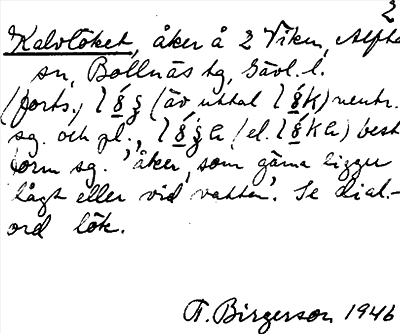 2
Kalvlöket, åker å 2 Viken, Alfta
sn, Bollnäs tg, Gävl. l.
(forts.) (äv uttal neutr.
sg. och pl., (el. best
form sg. 'åker, som gärna ligger
lågt eller vid vatten'. Se dial.-
ord lök.
F. Birgerson 1946